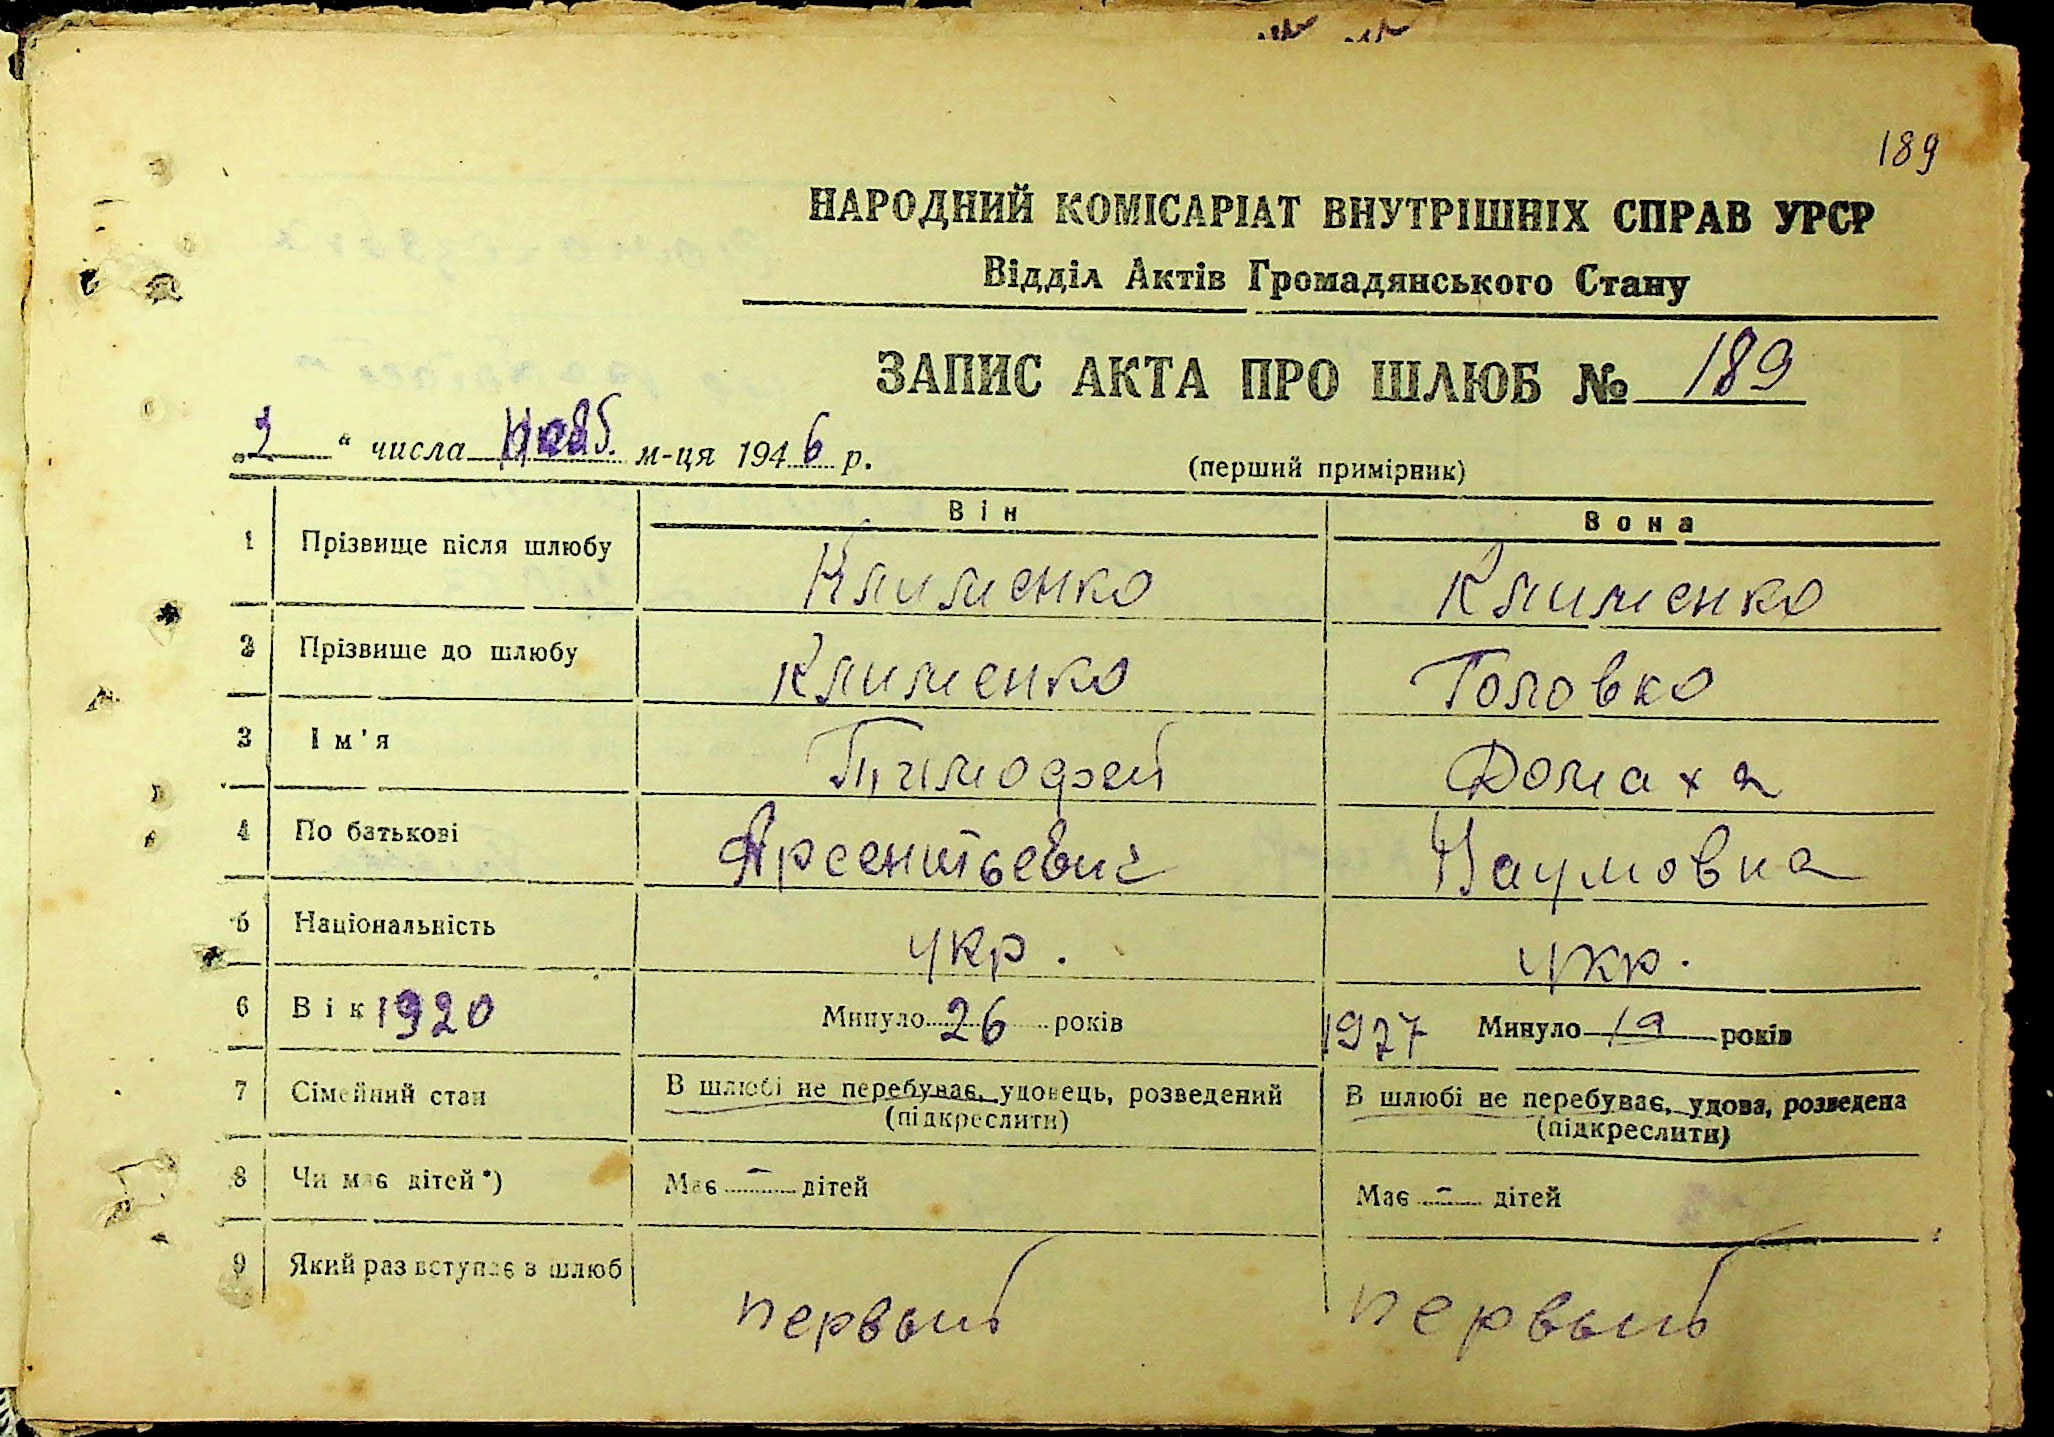 189
НАРОДНИЙ КОМІСАРІАТ ВНУТРІШНІХ СПРАВ УРСР
Відділ Актів Громадянського Стану
ЗАПИС АКТА ПРО ШЛЮБ № 189
„2“ числа Нояб. м-ця 1946 р.
(перший примірник)
Він Вона
1 Прізвище після шлюбу Клименко Клименко
2 Прізвище до шлюбу Клименко Головко
3 Ім'я Тимофей Домаха
4 По батькові Арсентьевич Наумовна
5 Національність укр. укр.
6 Вік 1920 Минуло 26 років 1927 Минуло 19 років
7 Сімейний стан В шлюбі не перебуває, удовець, розведений В шлюбі не перебуває, удова, розведена
(підкреслити) (підкреслити)
8 Чи має дітей*) Має – дітей Має – дітей
9 Який раз вступає в шлюб первый первый